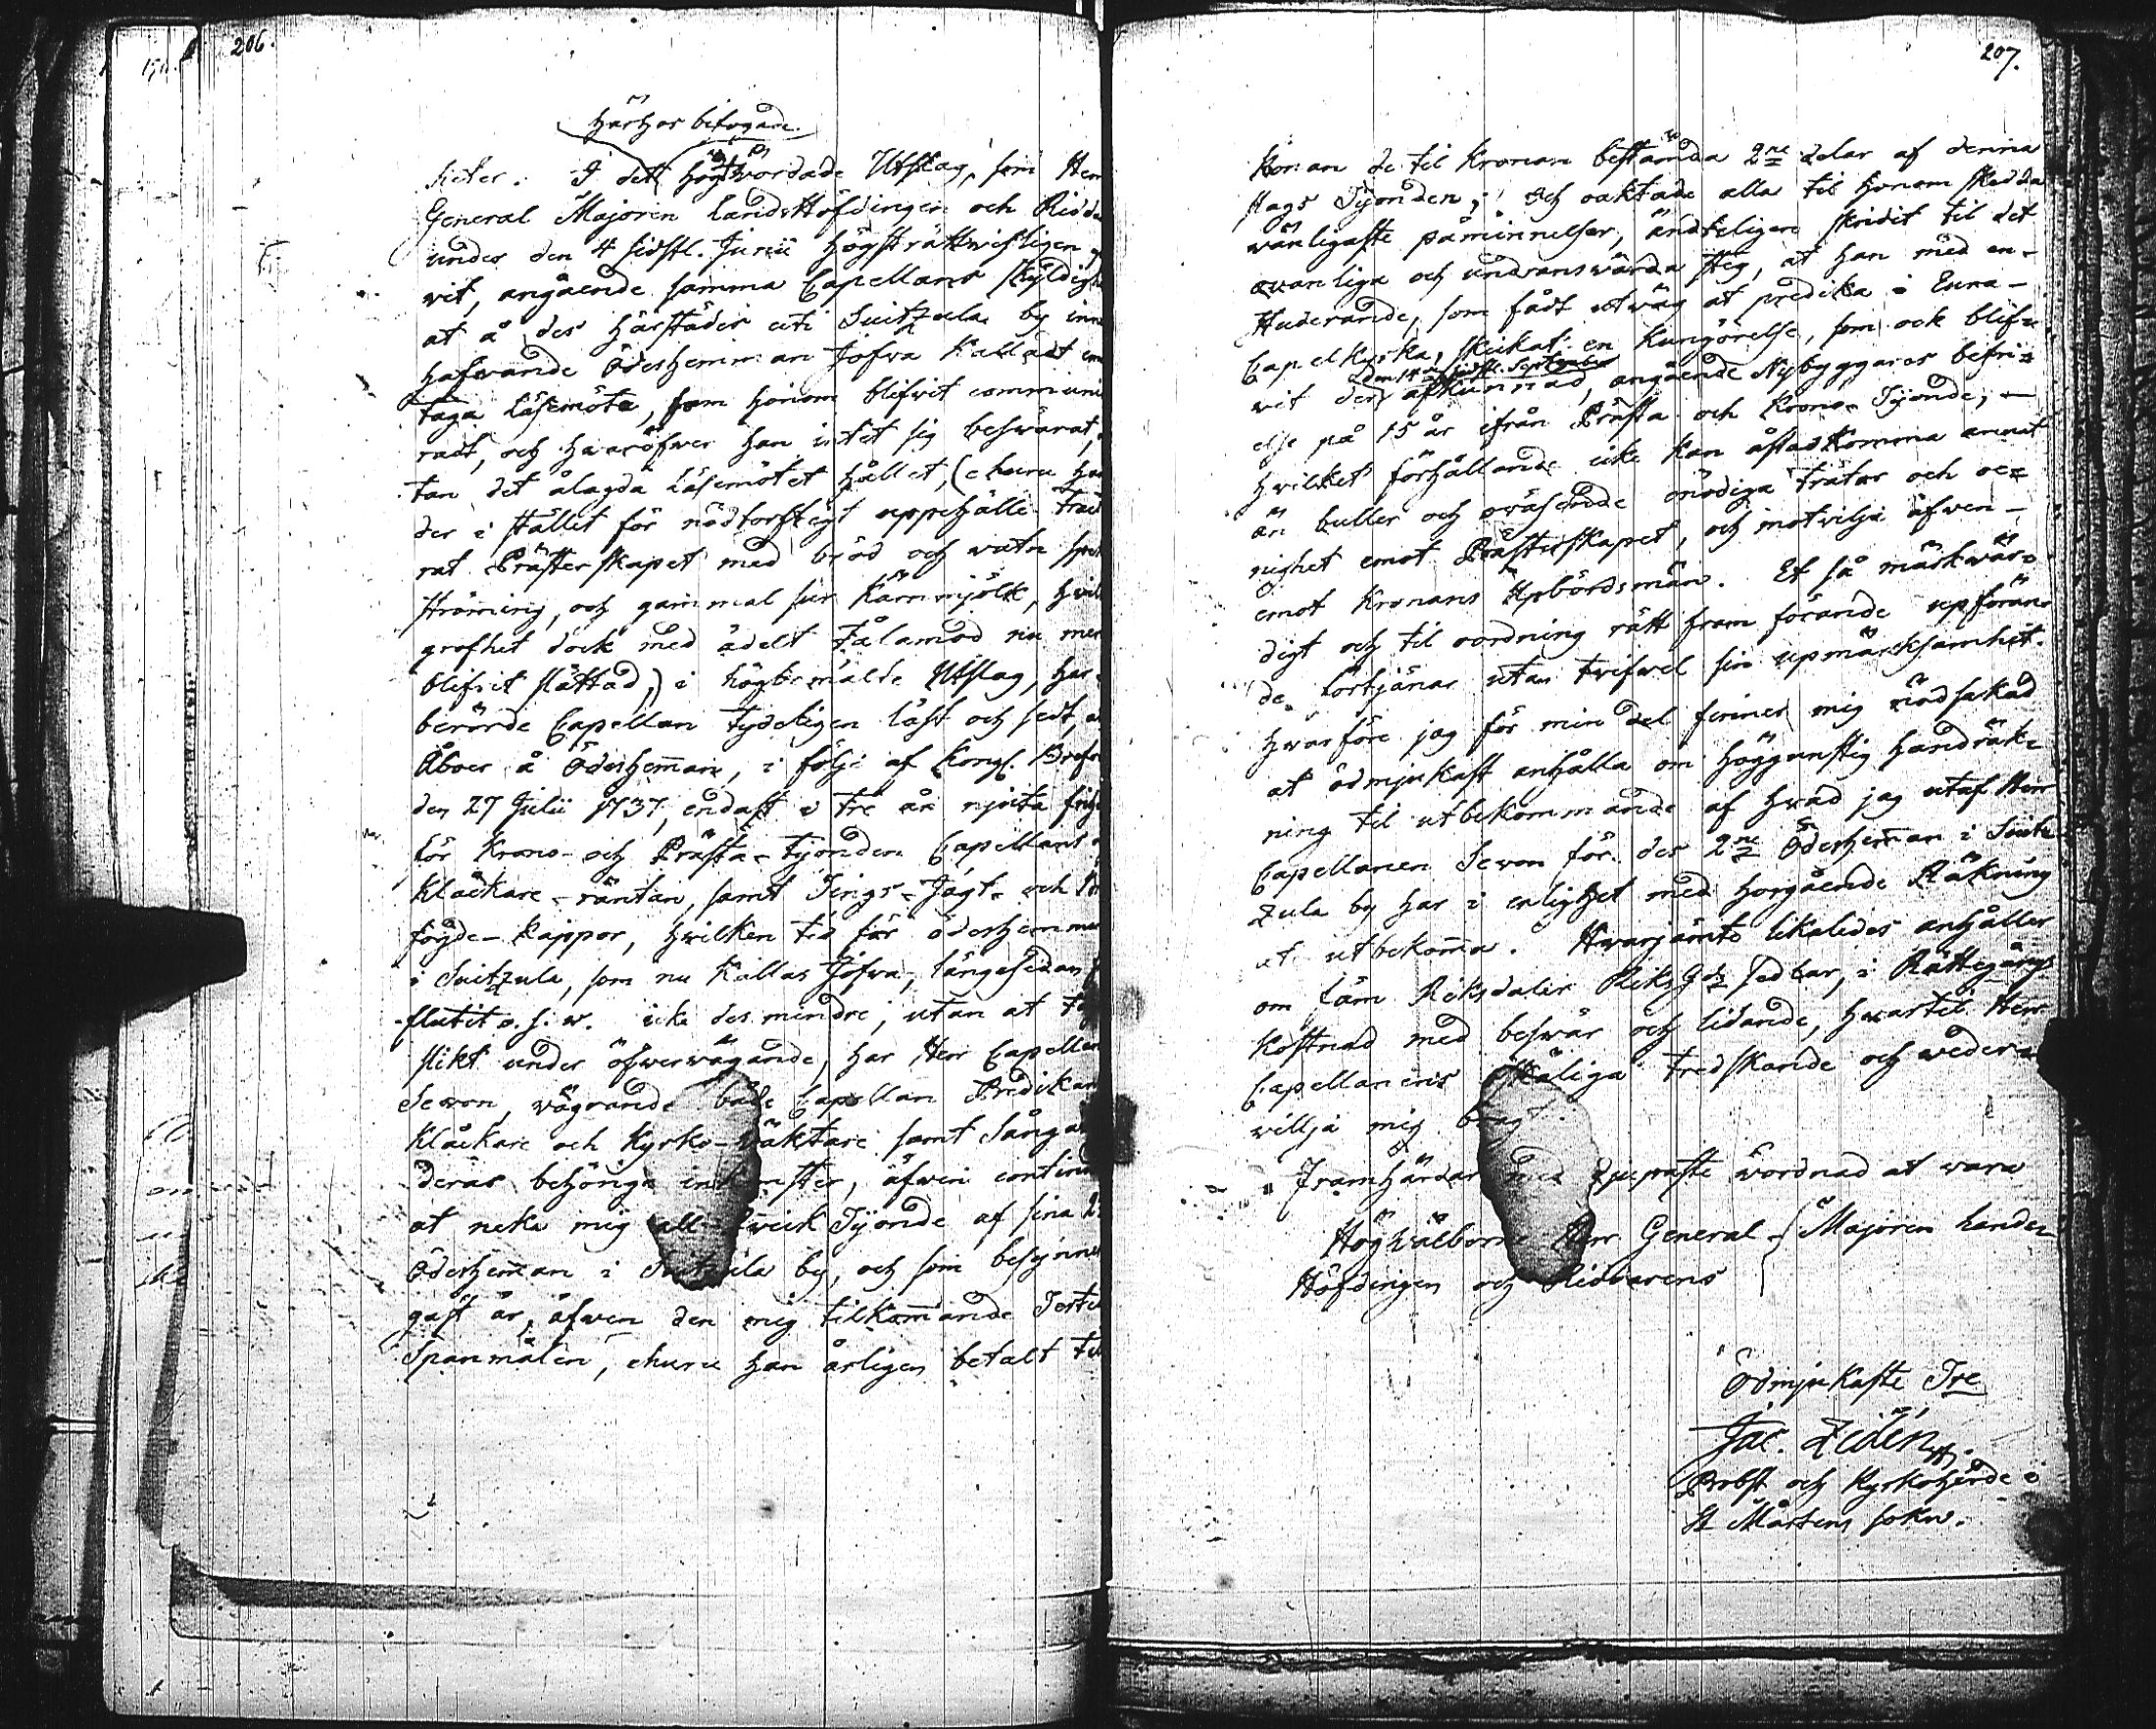 206.
härhos bifogade
heter. I det högtvördade Utslag, som Herr
General Majoren Landshöfdingen och Ridd
under den 4 sidstl. Junii högsträttwisligen
vit, angående samma Capellans skyldigh
at å des härstädes uti Suitzula by inne
hafwande Ödeshemman Jofwa kalladt em
taga Läsemöte, som honom blifwit communi
radt, och hwaröfwer han intet sig beswärat,
tan det ålagda Läsemötet hållet, (churu ha
der i stället för nödtorftigt uppehälle trac
rat Prästerskapet med bröd och watn
strömming, och gammal sur kärnmjölk, hwil
grofhet dock med ädelt tålamod nu mer
blifvit slättad,) i högbemälde Utslag, har
berörde Capellan tydeligen läst och sedt, at
Åboer å Ödeshemman, i följe af Kongl. Brefw
den 27 Julii 1737, endast i tre år njuta frih
för Krono- och Prästa-Tijonden Capellans
Klåckare-räntan, samt Tings-Jagt- och
fogde-kappor, hwilken tid för ödeshemman
i Suitzula, som nu kallas Jofwa, längesedan
flutit o. s. w. icke des mindre, utan at
slikt under öfwerwägande, har Herr Capellan
Sewon, vägrande både Capellan Predikan
Klåckare och Kyrko-wäktare samt Sånga
deras behöriga inkomster, äfwen continue
at neka mig all Qvick Tijonde af sina 2
Ödeshemman i Suitzula by, och som besynner
gast är, äfwen den mig tilkommande Terti
Spanmålen, churu han årligen betalt til
207.
Kronan de til Kronan bestämda 2ne delar af denna
slags Tijonden; och oaktade alla til honom skedda
wänligaste påminnelser, ändteligen skridit til det
owanliga och undranswärda steg, at han med en
Studerande, som fådt utwäg at predika i Eura-
Capelkyrka, skickat en Kungörelse, som ock blif-
den 14 sidstl. September
vit der afkunnad, angående Nybyggares befri-
else på 15 år ifrån Prästa- och Krono-Tijonde,
hvilket förhållande icke kan åstadkomma annat
än buller och oväsende onödiga trätor och oe-
nighet emot Prästerskapet, och motvilja äfwen
emot Kronans Upbördsmän. Et så märkwär-
digt och til oordning rätt fram förande upföran-
de förtjänar utan twifwel sin upmärksamhet.
Hwarföre jag för min del finner mig nödsakad
at ödmjukast anhålla om höggunstig handräk-
ning til utbekommande af hwad jag utaf Herr
Capellanen Sewon för des 2ne Ödeshemman i Suit-
zula by har i enlighet med horgående Räkning
at utbekomma. Hwarjämte likaledes anhåller
om fäm Riksdaler Riksgds sedlar, i Rättegångs
kostnad med beswär och lidande, hwartil Herr
Capellanens oskäliga tredskande och weder-
willja mig bragt.
Framhärdar med djupaste wördnad at vara
Högwälborne Herr General-Majoren Lands-
Höfdingen och Riddarens
Ödmjukaste Tre
Jac. Zidén
Probst och Kyrkoherde i
St Mårtens sokn.